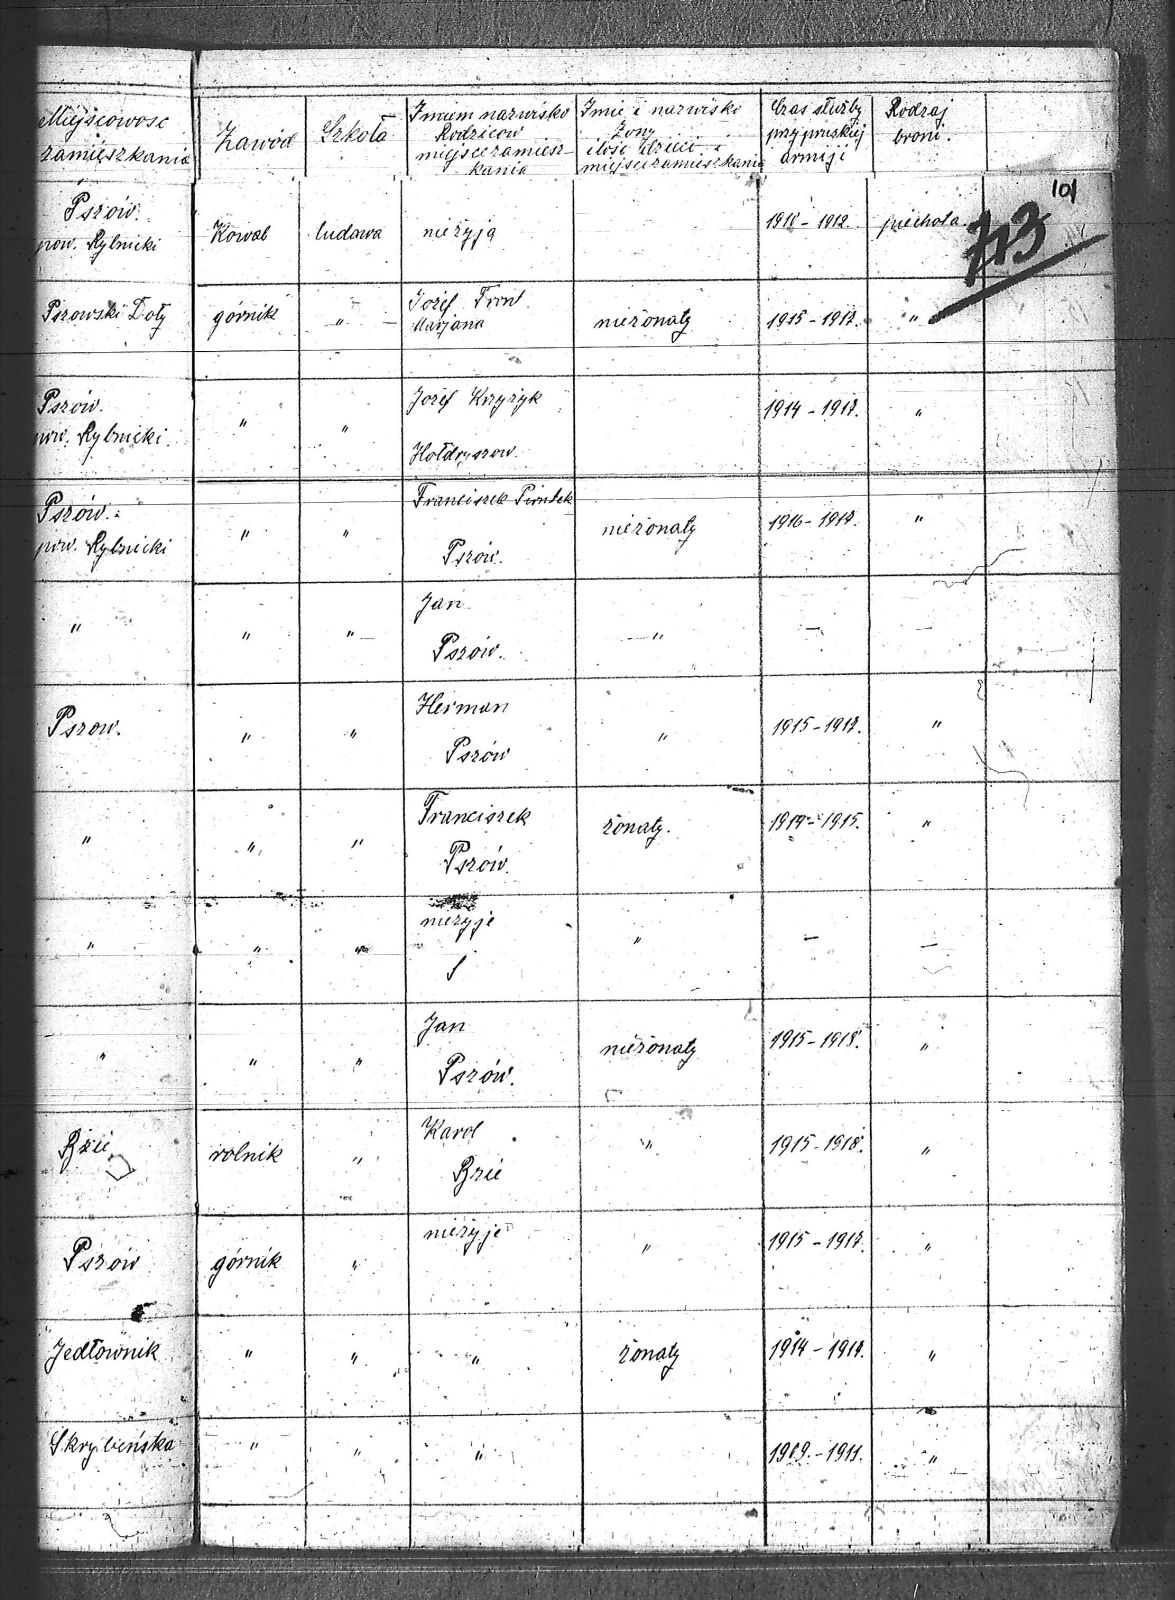 Miejscowość zamieszkania Zawód Szkoła Imiem nazwisko Rodziców miejscezamieszkania Imie i nazwisko żony ilość dzieci i miejscezamieszkania Czas służby przy pruskiej armiji Rodzaj broni.
101
713
Pszów. pow. Rybnicki Kowal ludowa nieżyją 1910 - 1912. piechota.
Pszowski Doły górnik „ Józef Marjana nieżonaty 1915 - 1917. „
Pszów. pow. Rybnicki. „ „ Józef Krzyżyk Hołdryszow. 1914 - 1917. „
Pszów. pow. Rybnicki „ „ Franciszek Piontek Pszów. nieżonaty 1916 - 1917. „
„ „ „ Jan Pszów. „ — —
Pszow. „ „ Herman Pszów „ 1915 - 1917. „
„ „ „ Franciszek Pszów. żonaty. 1914 - 1915. „
„ „ „ nieżyje „ — —
„ „ „ Jan Pszów. nieżonaty 1915 - 1918. „
Bzie rolnik „ Karol Bzie „ 1915 - 1918. „
Pszów górnik „ nieżyje „ 1915 - 1917. „
Jedłownik „ „ „ żonaty 1914 - 1917. „
Skrybeńsko „ „ „ 1909. - 1911. „